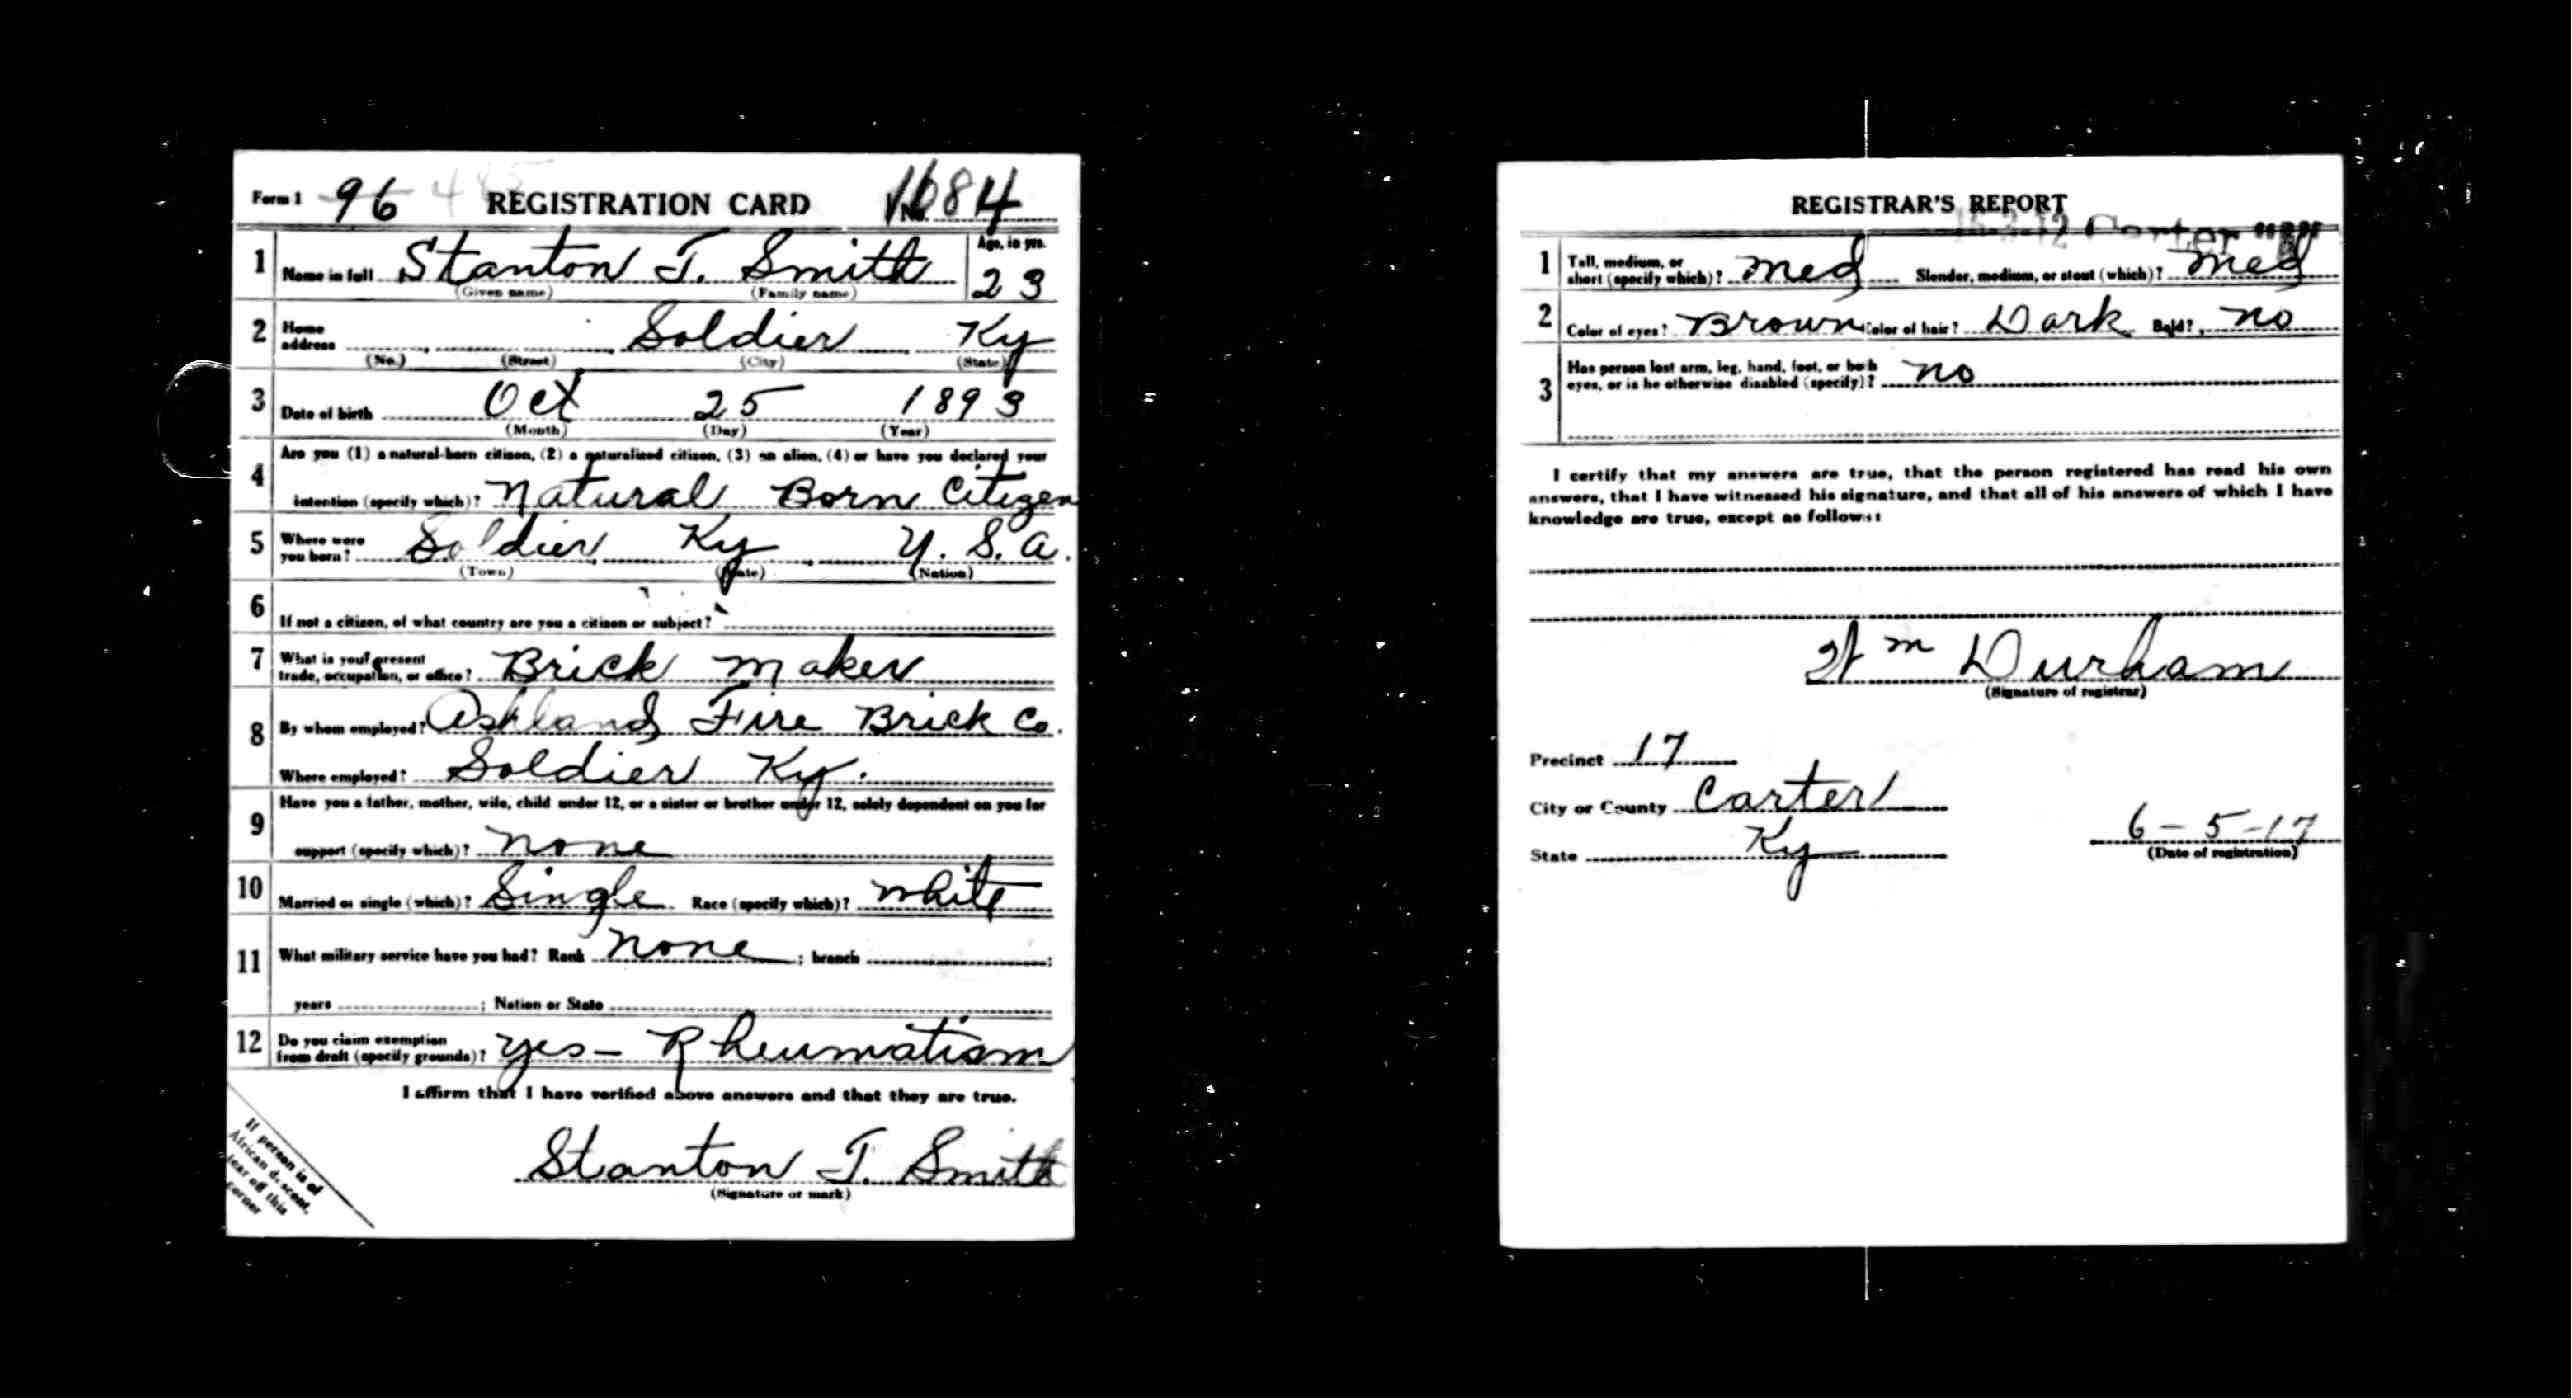 Form 1 96 REGISTRATION CARD No. 1684
1 Name in full Stanton T. Smith Age, in yrs. 23
(Given name) (Family name)
2 Home address Soldier Ky
(No.) (Street) (City) (State)
3 Date of birth Oct 25 1893
(Month) (Day) (Year)
4 Are you (1) a natural-born citizen, (2) a naturalized citizen, (3) an alien, (4) or have you declared your
intention (specify which)? Natural Born Citizen
5 Where were you born? Soldier Ky U. S. A.
(Town) (State) (Nation)
6 If not a citizen, of what country are you a citizen or subject?
7 What is your present
trade, occupation, or office? Brick Maker
8 By whom employed? Ashland Fire Brick Co.
Where employed? Soldier Ky.
9 Have you a father, mother, wife, child under 12, or a sister or brother under 12, solely dependent on you for
support (specify which)? None
10 Married or single (which)? Single Race (specify which)? White
11 What military service have you had? Rank None ; branch ;
years ; Nation or State
12 Do you claim exemption
from draft (specify grounds)? Yes – Rheumatism
I affirm that I have verified above answers and that they are true.
Stanton T. Smith
(Signature or mark)
If person is of
African descent,
tear off this
corner
REGISTRAR'S REPORT
Carter
1 Tall, medium, or
short (specify which)? Med Slender, medium, or stout (which)? Med
2 Color of eyes? Brown Color of hair? Dark Bald? No
3 Has person lost arm, leg, hand, foot, or both
eyes, or is he otherwise disabled (specify)? No
I certify that my answers are true, that the person registered has read his own
answers, that I have witnessed his signature, and that all of his answers of which I have
knowledge are true, except as follows:
Wm Durham
(Signature of registrar)
Precinct 17
City or County Carter
State Ky
6-5-17
(Date of registration)